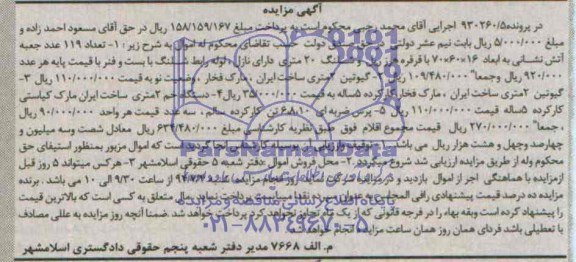 آگهی مزایده
در پرونده ۹۳۰۲۶۰/۵ اجرایی آقای محمد رجبی محکوم است به پرداخت مبلغ ۱۵۸/۱۵۹/۱۶۷ ریال در حق آقای مسعود احمد زاده و
مبلغ ۵/۰۰۰/۰۰۰ ریال بابت نیم عشر دولتی در حق دولت حسب تقاضای محکوم له اموال به شرح زیر : ۱- تعداد ۱۱۹ عدد جعبه
آتش نشانی به ابعاد ۱۶×۶۰×۷۰ با قرقره شلنگ ۲۰ متری دارای نازل لوله رابط شلنگ با بست و فنر با قیمت پایه هر عدد
۹۲۰/۰۰۰ ریال وجمعا" ۱۰۹/۴۸۰/۰۰۰ ریال گیوتین ۲متری ساخت ایران ، مارک فخار ، وضعیت نو به قیمت ۱۱۰/۰۰۰/۰۰۰ ریال ۳-
گیوتین ۲متری ساخت ایران ، مارک فخار کارکرده ۵ساله به قیمت ۳۵/۰۰۰/۰۰۰ریال ۴- دستگاه خم ۲متری ساخت ایران مارک کیاستی
کارکرده ۵ساله قیمت ۱۱۰/۰۰۰/۰۰۰ ریال ۵- پرس ضربه ای ۶،۸،۱۰ تن کارکرده سالم ، سه عدد قیمت هر واحد ۹۰/۰۰۰/۰۰۰ ریال
، جمعا" ۲۷۰/۰۰۰/۰۰۰ ریال قیمت مجموع اقلام فوق طبق نظریه کارشناسی مبلغ ۶۳۴/۴۸۰/۰۰۰ ریال معادل شصت وسه میلیون و
چهارصد وچهل و هشت هزار ریال می باشد که اموال مزبور بمنظور استیفای حق
محکوم وله از طریق مزایده ارزیابی شد شروع میگردد ۲- محل فروش اموال دفتر شعبه ۵ حقوقی اسلامشهر ۳- هرکس میتواند ۵ روز قبل
ازمزایده با هماهنگی اجرا از اموال بازدید و درمزایده شرکت نماید ۴- روز انجام مزایده شنبه ۹۴/۷/۴ از ساعت ۹/۳۰ الی ۱۰ می باشد . برنده
مزایده ده درصد قیمت پیشنهادی را فی المجلس به عنوان پرداخت نماید . مال متعلق به کسی است که بالاترین قیمت
را پیشنهاد کرده است وبقه بهاء را در فرجه قانونی که از یک ماه تجاوز نخواهد کرد پرداخت خواهد شد .ضمنا آنچه روز مزایده به عللی مصادف
با تعطیلی باشد فردای همان روز همان ساعت مزایده انجام خواهد شد .
م. الف ۷۶۶۸ مدیر دفتر شعبه پنجم حقوقی دادگستری اسلامشهر
ParsNamadData
پایگاه اطلاع رسانی مناقصه و مزایده
۰۲۱-۸۸۳۴۹۶۷۰-۵